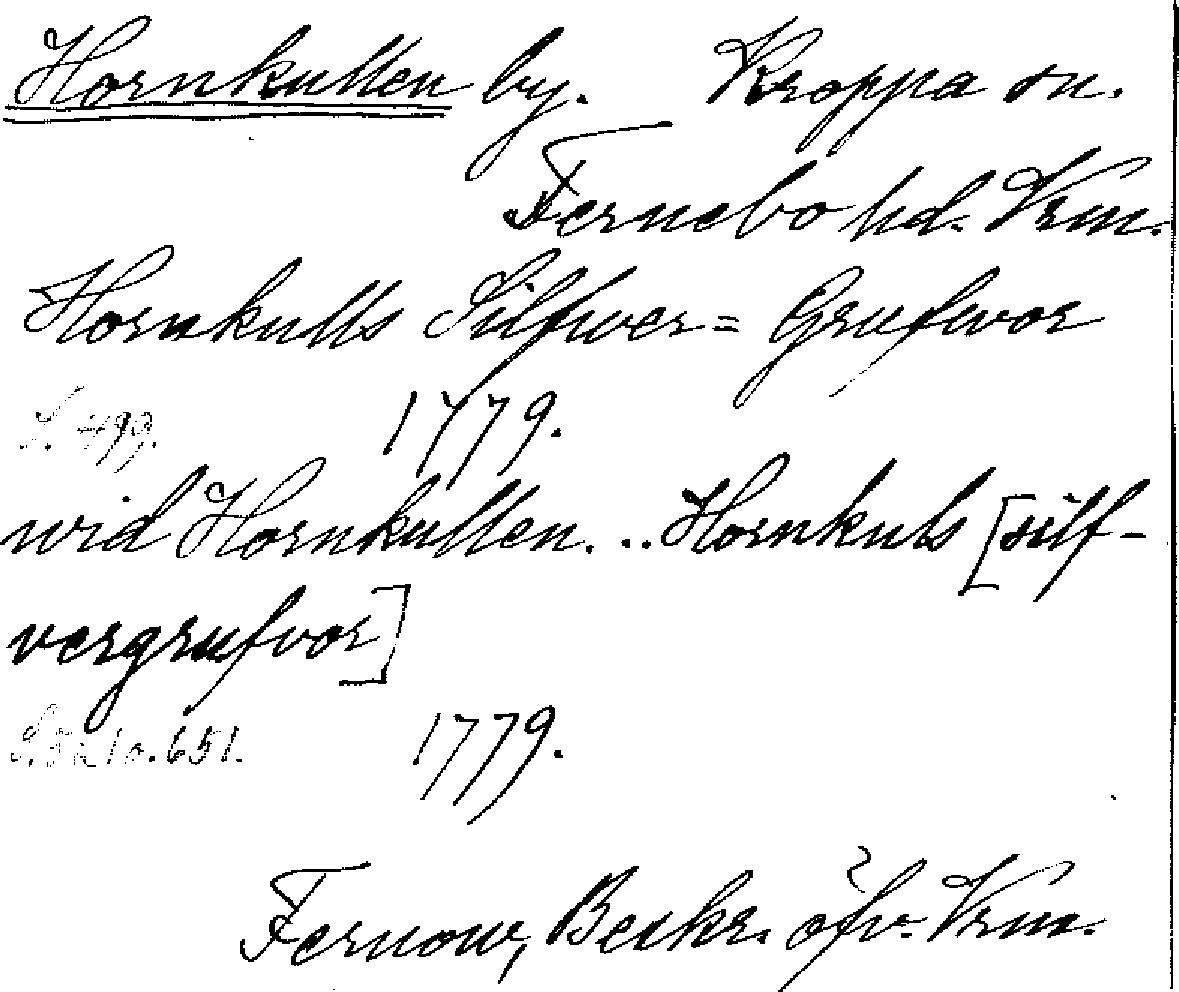 Hornkullen by. Kroppa sn.
Fernebo hd. Vrm.
Hornkulls Silfwer= Grufvor
S. 499. 1779.
wid Hornkullen. .. Hornkuls [silf-
vergrufvor]
651. 1779.
Fernow, Beskr. öfv. Vrm.